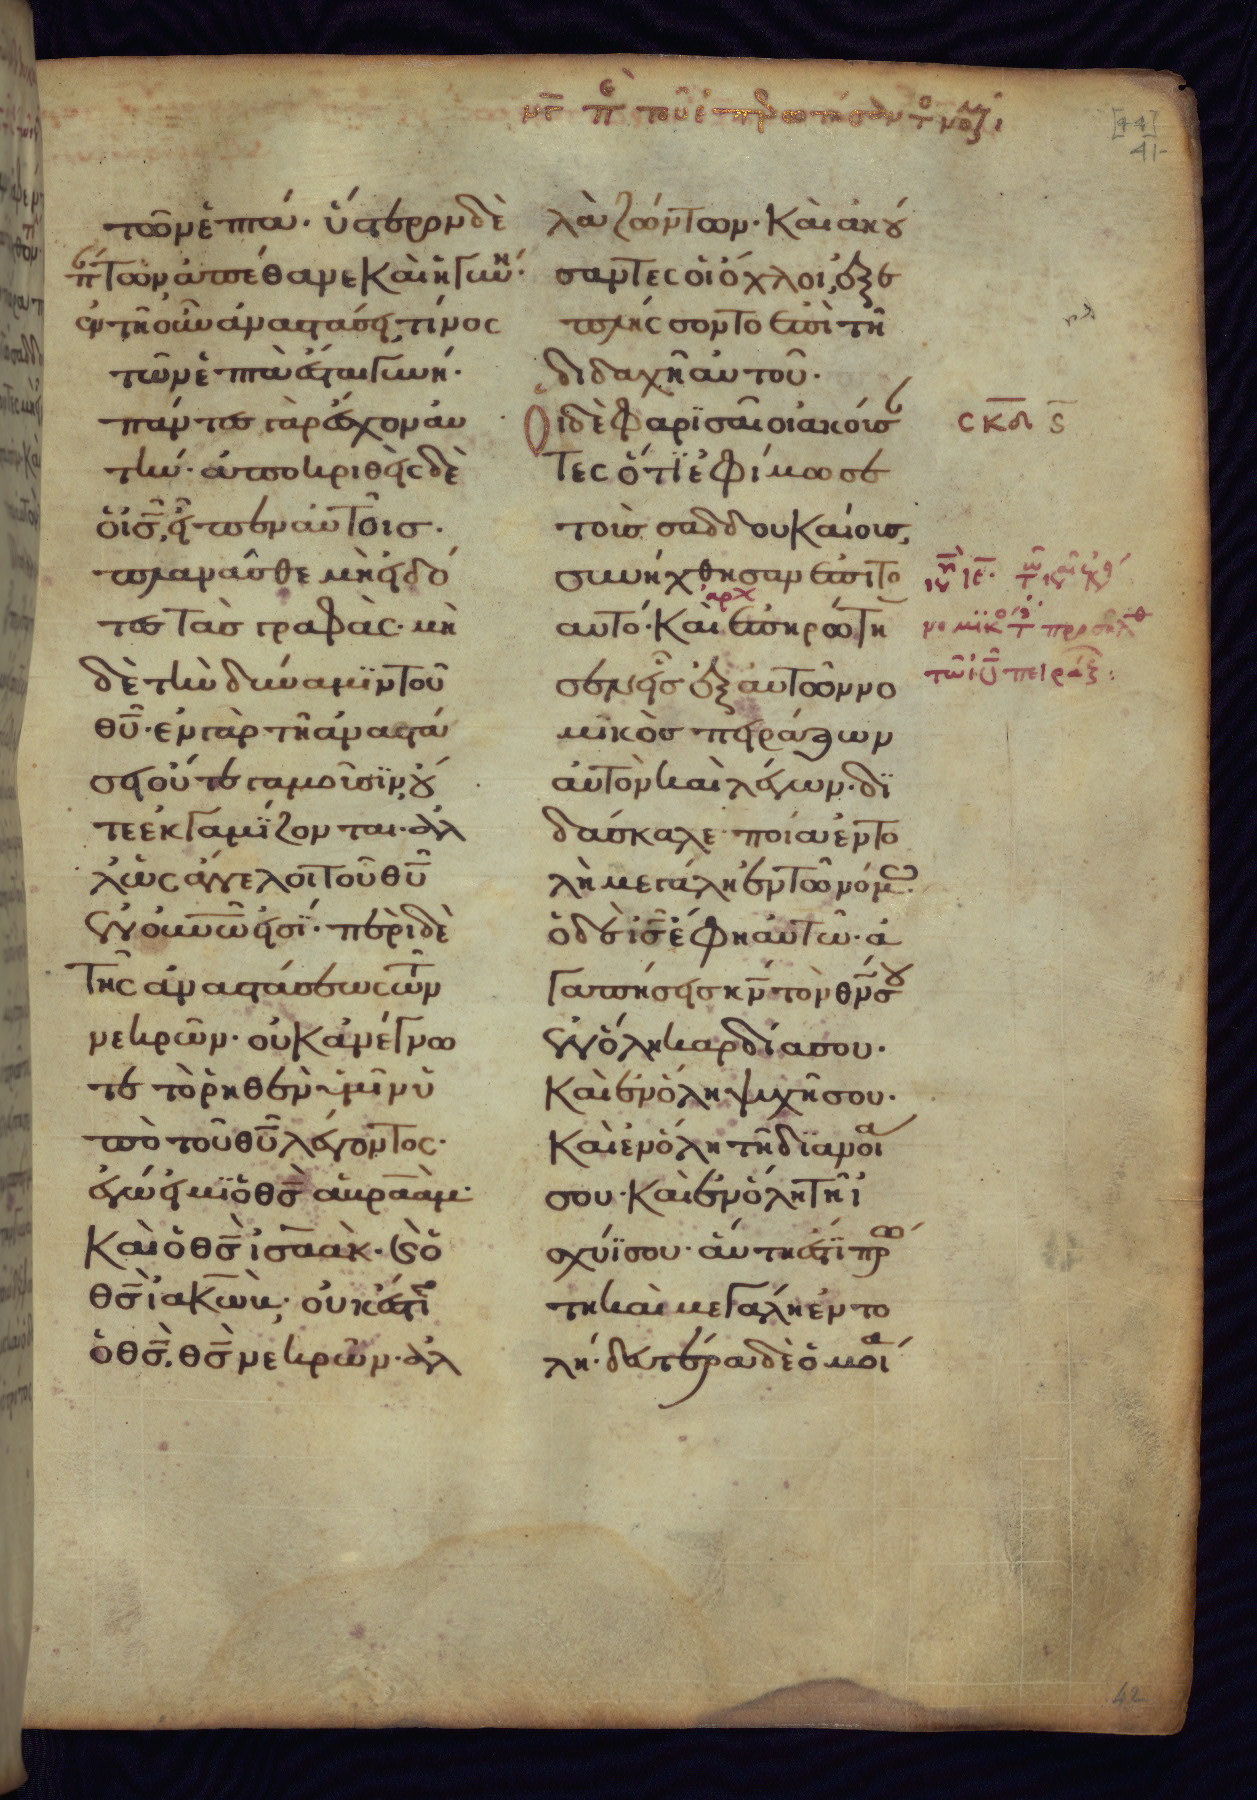 νε πε τοῦ ἐπερωτήσαντ τ κν νομικ
[44]
41
τῶν ἑπτά· ὕστερον δὲ
πάντων ἀπέθανε καὶ ἡ γυνή·
ἐν τῇ οὖν ἀναστάσει, τίνος
τῶν ἑπτὰ ἔσται γυνή·
πάντες γὰρ ἔσχον αὐ
τήν· ἀποκριθεὶς δὲ
ὁ ι̅ς̅, εἶπεν αὐτοῖς·
πλανᾶσθε μὴ εἰδό
τες τὰς γραφάς· μὴ
δὲ τὴν δύναμϊν τοῦ
θ̅υ̅· ἐν γὰρ τῇ ἀναστά
σει οὔτε γαμοῦσϊν, οὔ
τε ἐκγαμΐζονται· ἀλ
λ' ὡς ἄγγελοι τοῦ θ̅υ̅
ἐν ο̅υ̅ν̅ω̅ εἰσΐ· περὶ δὲ
τῆς ἀναστάσεως τῶν
νεκρῶν· οὐκ ἀνέγνω
τε τὸ ῥηθὲν ὑμῖν ὑ
πὸ τοῦ θ̅υ̅ λέγοντος·
ἐγώ εἰμϊ ὁ θ̅ς̅ ἀβραάμ·
καὶ ὁ θ̅ς̅ ἰσαάκ· καὶ ὁ
θ̅ς̅ ἰακώβ, οὐκ ἔστϊν
ὁ θ̅ς̅, θ̅ς̅ νεκρῶν· ἀλ
λὰ ζώντων· Καὶ ἀκού
σαντες οἱ ὄχλοι, ἐξε
πλήσσοντο ἐπὶ τῇ
διδαχῇ αὐτοῦ·
Οἱ δὲ φαρϊσαῖοι ἀκούσαν
τες ὅτϊ ἐφίμωσε
τοὺς σαδδουκαίους,
συνήχθησαν ἐπὶ το
αὐτό· Καὶ ἐπηρώτη
ἀρχ
σεν εἷς ἐξ αὐτῶν νο
μϊκὸς πειράζων
αὐτὸν καὶ λέγων· δϊ
δάσκαλε ποία ἐντο
λὴ μεγάλη ἐν τῶ νόμω;
ὁ δὲ ι̅ς̅ ἔφη αὐτῶ· ἀ
γαπήσεις κ̅ν̅ τὸν θ̅ν̅ σου
ἐν ὅλη καρδία σου·
Καὶ ἐν ὅλη ψυχῆ σου·
Καὶ ἐν ὅλη τῆ δϊανοία
σου· Καὶ ἐν ὅλη τῆ ἰ
σχύϊ σου· αὕτη ἐστϊ πρώ
τη καὶ μεγάλη ἐντο
λή· δευτέρα δὲ ὁμοία
42